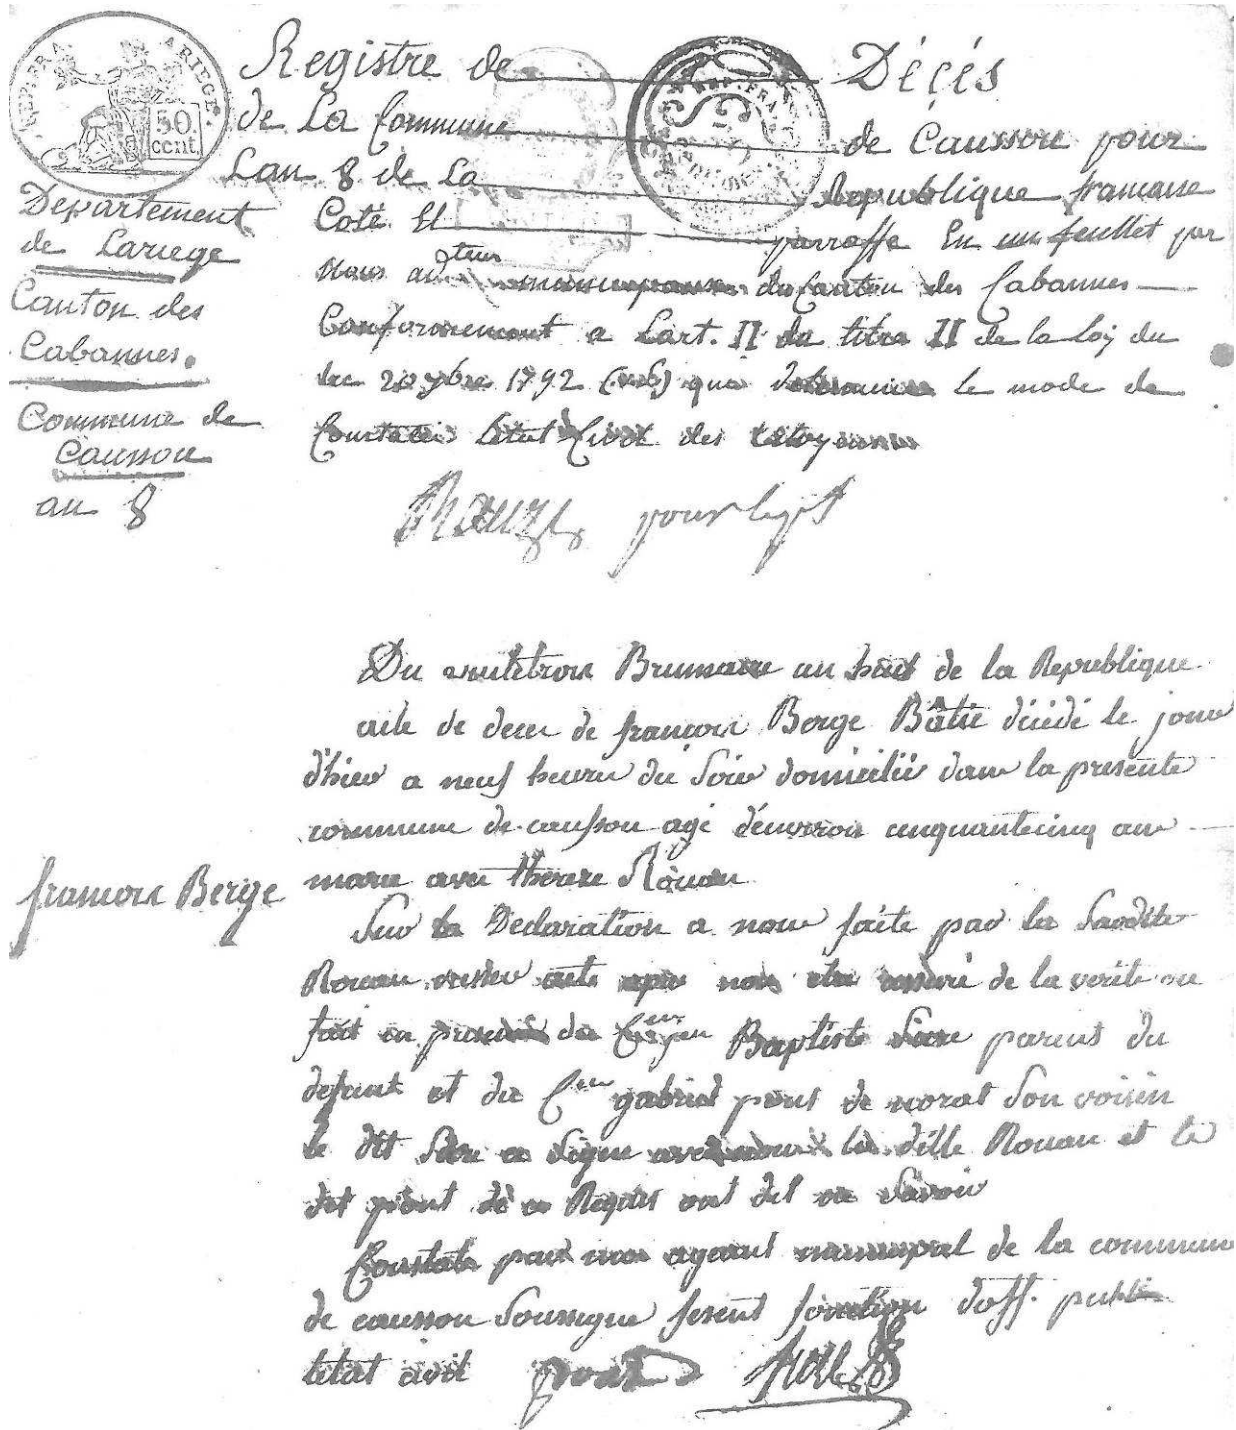 REP. FRA. ARIEGE.
50
cent.
Registre de Décés
de La Commune de Caussore pour
Lan 8 de La Republique francaise
Coté Et parraffe En un feullet par
Nous ad teur du Canton des Cabannes
Conformement a Lart. II du titre II de la Loy du
20 7bre 1792 (vs) que determine le mode de
Constater Létat Civil des Citoyens
Departement
de Lariege
Canton des
Cabannes.
Commune de
Caussou
an 8
Du vintetrois Brumaire an huit de la Republique
acte de deces de francois Berge Bâtié décédé le jour
d'hier a neuf heures du Soir domicilié dans la presente
commune de caussou agé d'environ cinquantecinq ans
francois Berge
marie avec therese Rouan
Sur la Declaration a nous faite par la Susdite
Rouan acte apres nous etre assuré de la verité du
fait en presence du Citoyen Baptiste Sicre parent du
defunt et du C.en gabriel pont de norat Son voisin
le dit Sicre a Signé avec nous la ditte Rouan et le
dit pont de ce Requis ont dit ne Savoir
Constaté par moi agent municipal de la commune
de caussou Soussigné fesent fonction d'off. public
letat civil